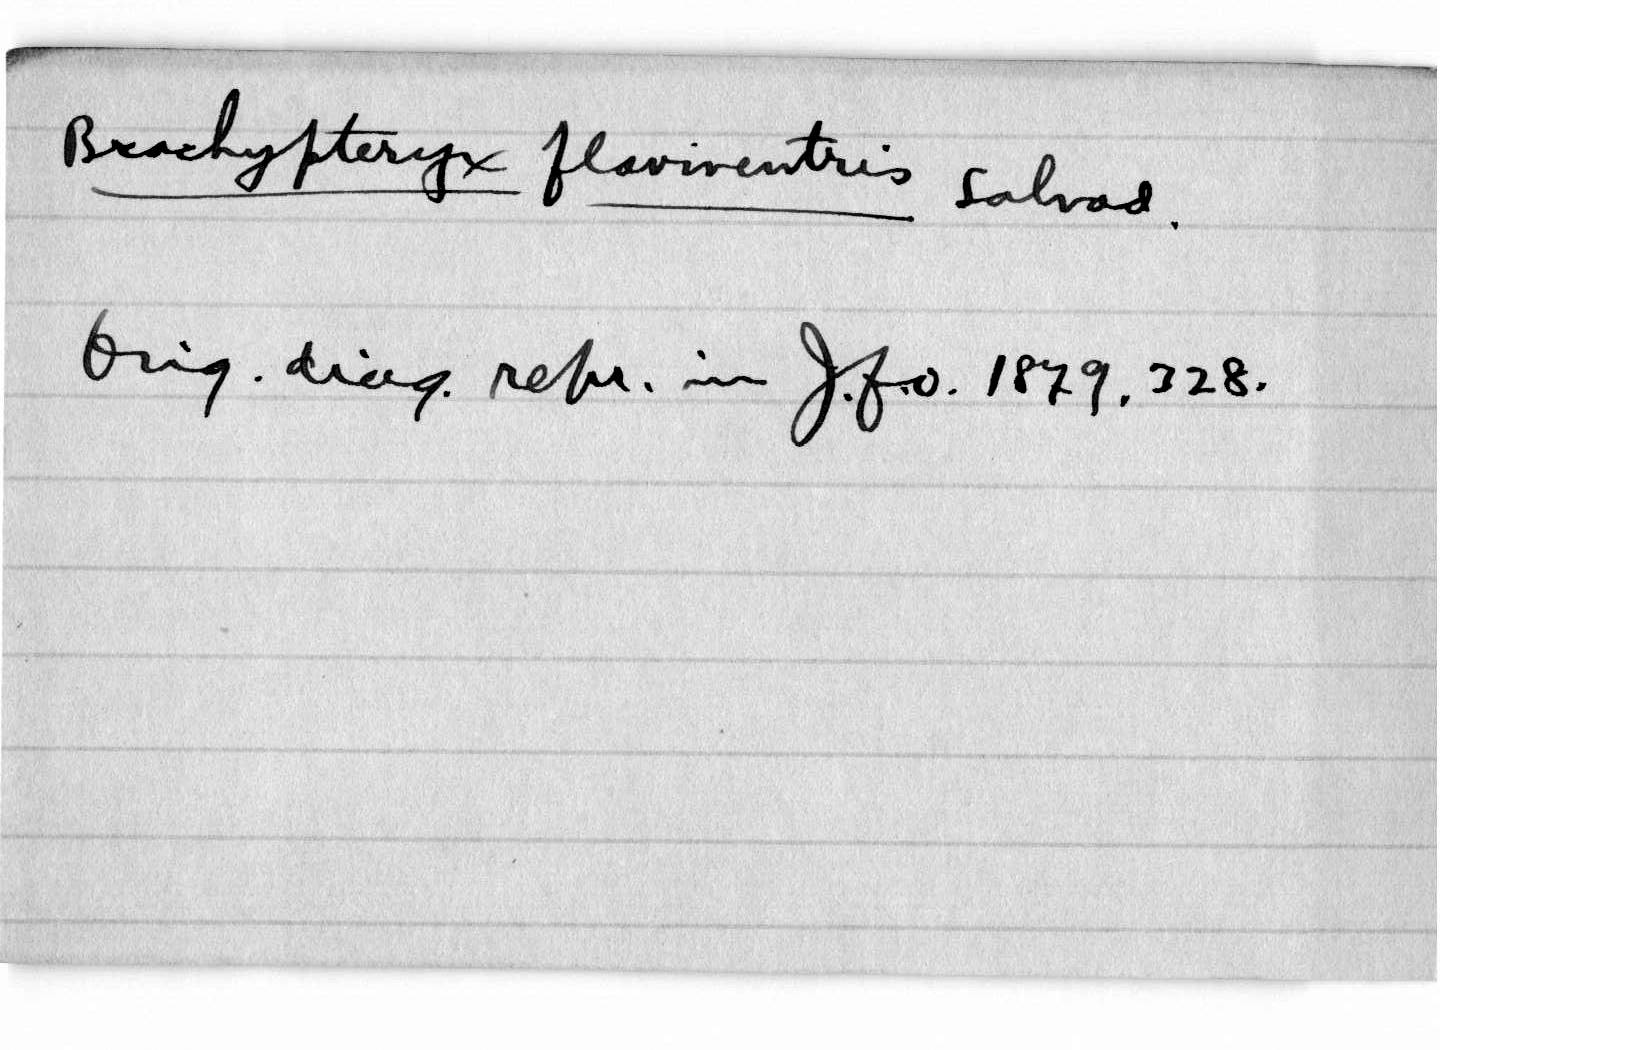 Brachypteryx flaviventris Salvad.
Orig. diag. repr. in J.f.O. 1879, 328.